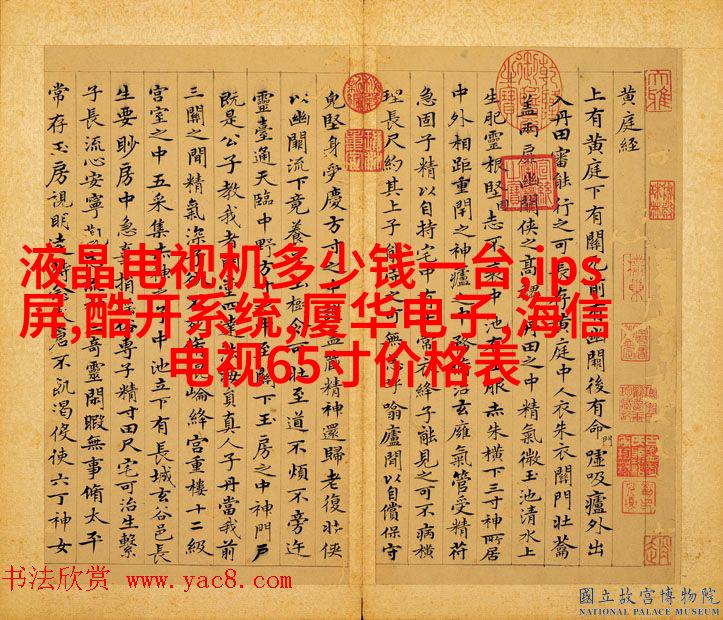 黄庭経
上有黄庭下有關元前有幽闗後有命門嘘吸廬外出
入丹田審能行之可長存黄庭中人衣朱衣關門壯蘥
蓋兩扉幽闗俠之高魏丹田之中精氣微玉池清水上
生肥靈根堅志不衰中池有士服赤朱横下三寸神所居
中外相距重閇之神廬之中務脩治玄廱氣管受精符
急固子精以自持宅中有士常衣絳子能見之可不病横
理長尺約其上子能守之可無恙呼噏廬間以自償保守
兒堅身受慶方寸之中謹蓋藏精神還歸老復壯俠
以幽闕流下竟養子玉樹令可壯至道不煩不旁迕
靈臺通天臨中野方寸之中至闗下玉房之中神門戶
既是公子教我者明堂四達法海員真人子丹當我前
三關之間精氣深子欲不死脩崑崘絳宮重樓十二級
宮室之中五采集赤神之子中池立下有長城玄谷邑長
生要眇房中急棄捐俗專子精寸田尺宅可治生繫
子長流心安寧志流神三奇靈閑暇無事脩太平
常存玉房視明達時念大倉不飢渴使六丁神女
液晶电视机多少钱一台,ips
屏,酷开系统,厦华电子,海信
电视65寸价格表
书法欣赏 www.yac8.com
國立故宮博物院
NATIONAL PALACE MUSEUM